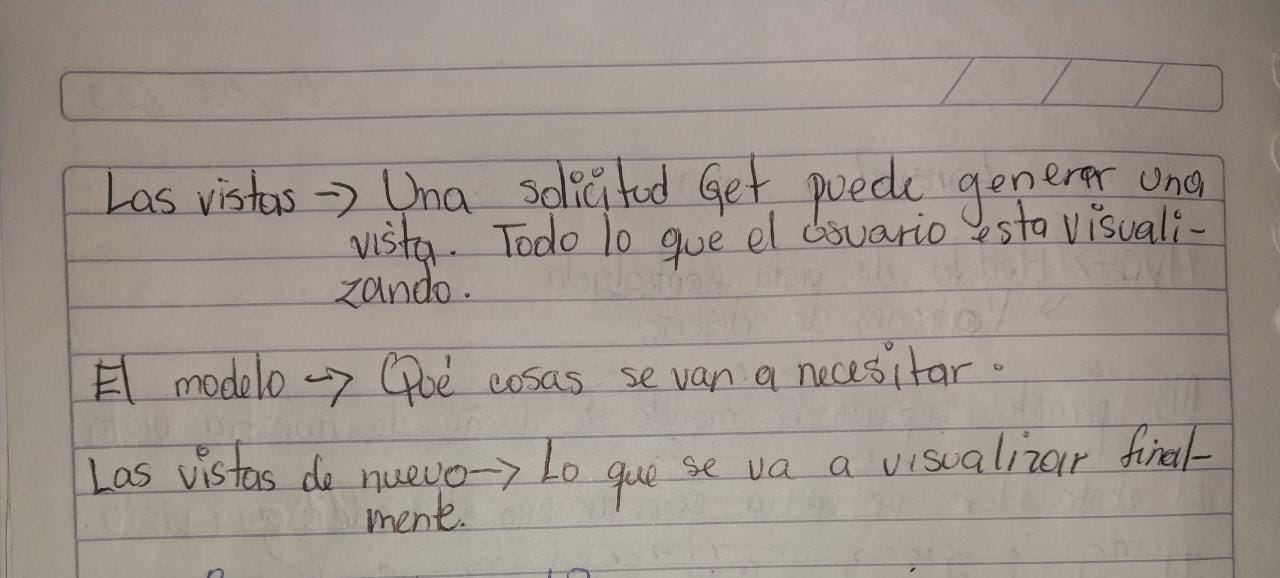 Las vistas → Una solicitud Get puede generar una
vista. Todo lo que el usuario esta visuali-
zando.
El modelo → Qué cosas se van a necesitar.
Las vistas de nuevo → Lo que se va a visualizar final-
mente.